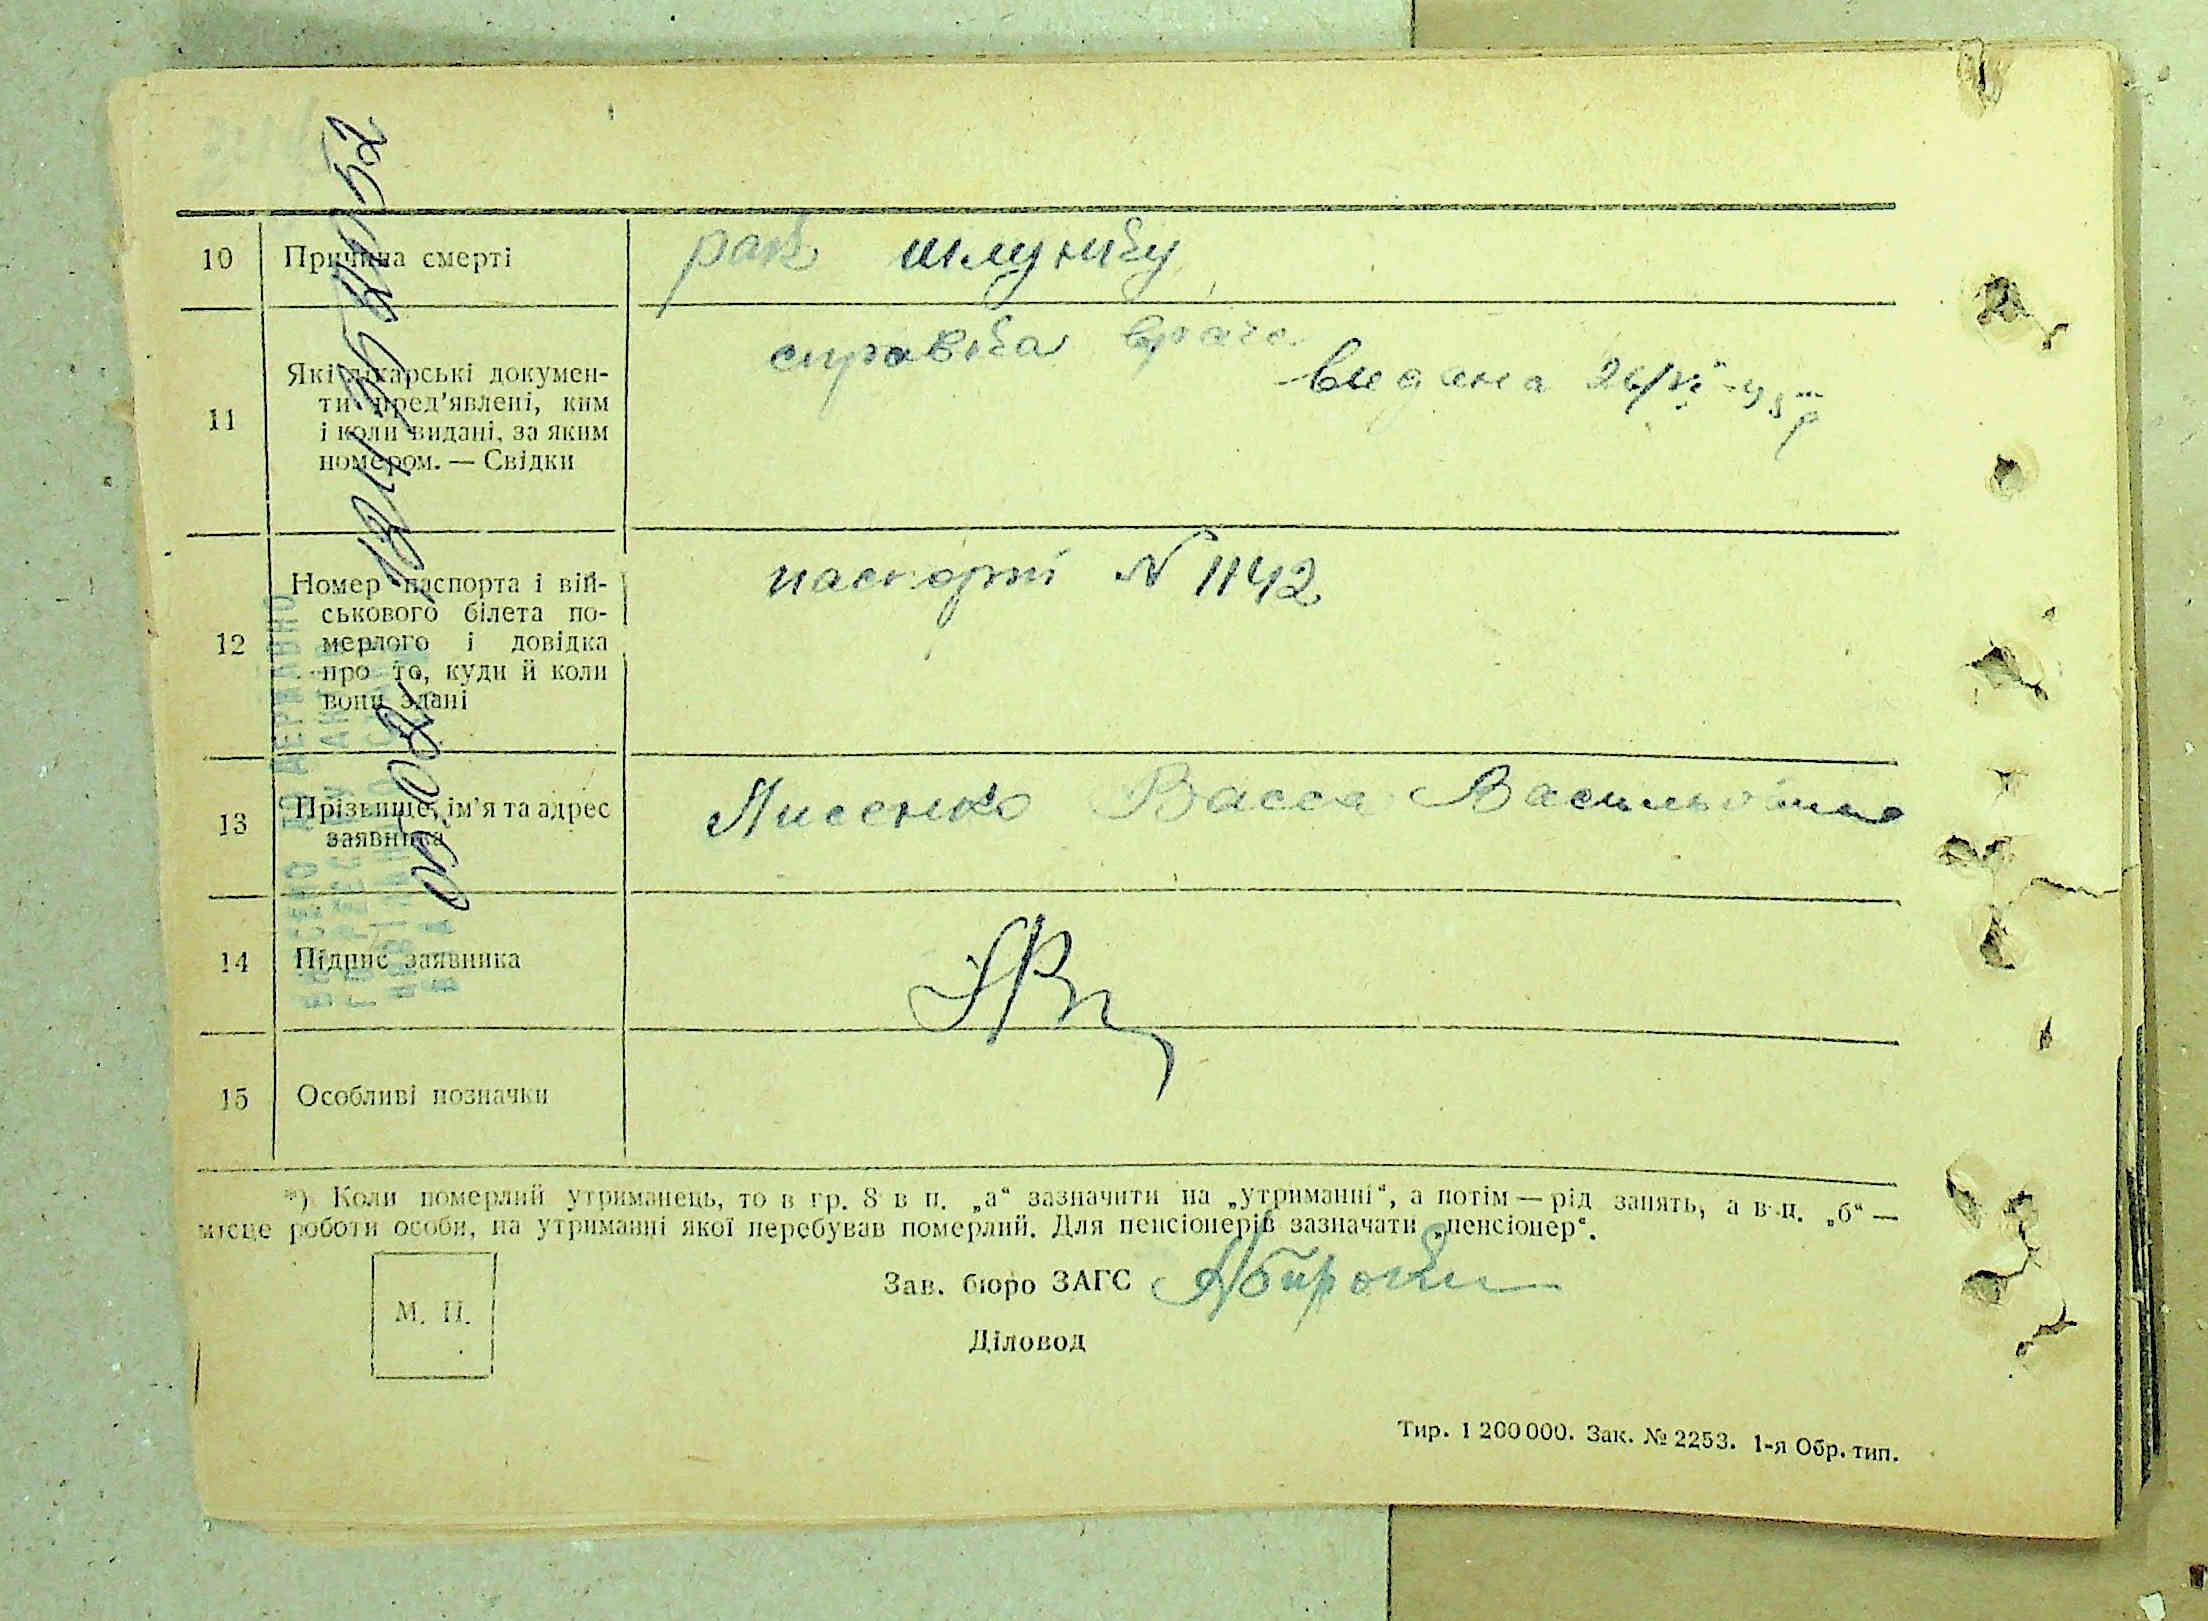 10 Причина смерті рак шлунку
11 Які лікарські докумен-
ти пред'явлені, ким
і коли видані, за яким
номером. — Свідки
справка врача
видана
12 Номер паспорта і вій-
ськового білета по-
мерлого і довідка
про те, куди й коли
вони здані
паспорт N 1142
13 Прізвище, ім'я та адрес
заявника
Лисенко Васса Васильовна
14 Підпис заявника
15 Особливі позначки
*) Коли померлий утриманець, то в гр. 8 в п. „а“ зазначити на „утриманні“, а потім — рід занять, а в п. „б“ —
місце роботи особи, на утриманні якої перебував померлий. Для пенсіонерів зазначати „пенсіонер“.
Зав. бюро ЗАГС
М. П.
Діловод
Тир. 1 200 000. Зак. № 2253. 1-я Обр. тип.